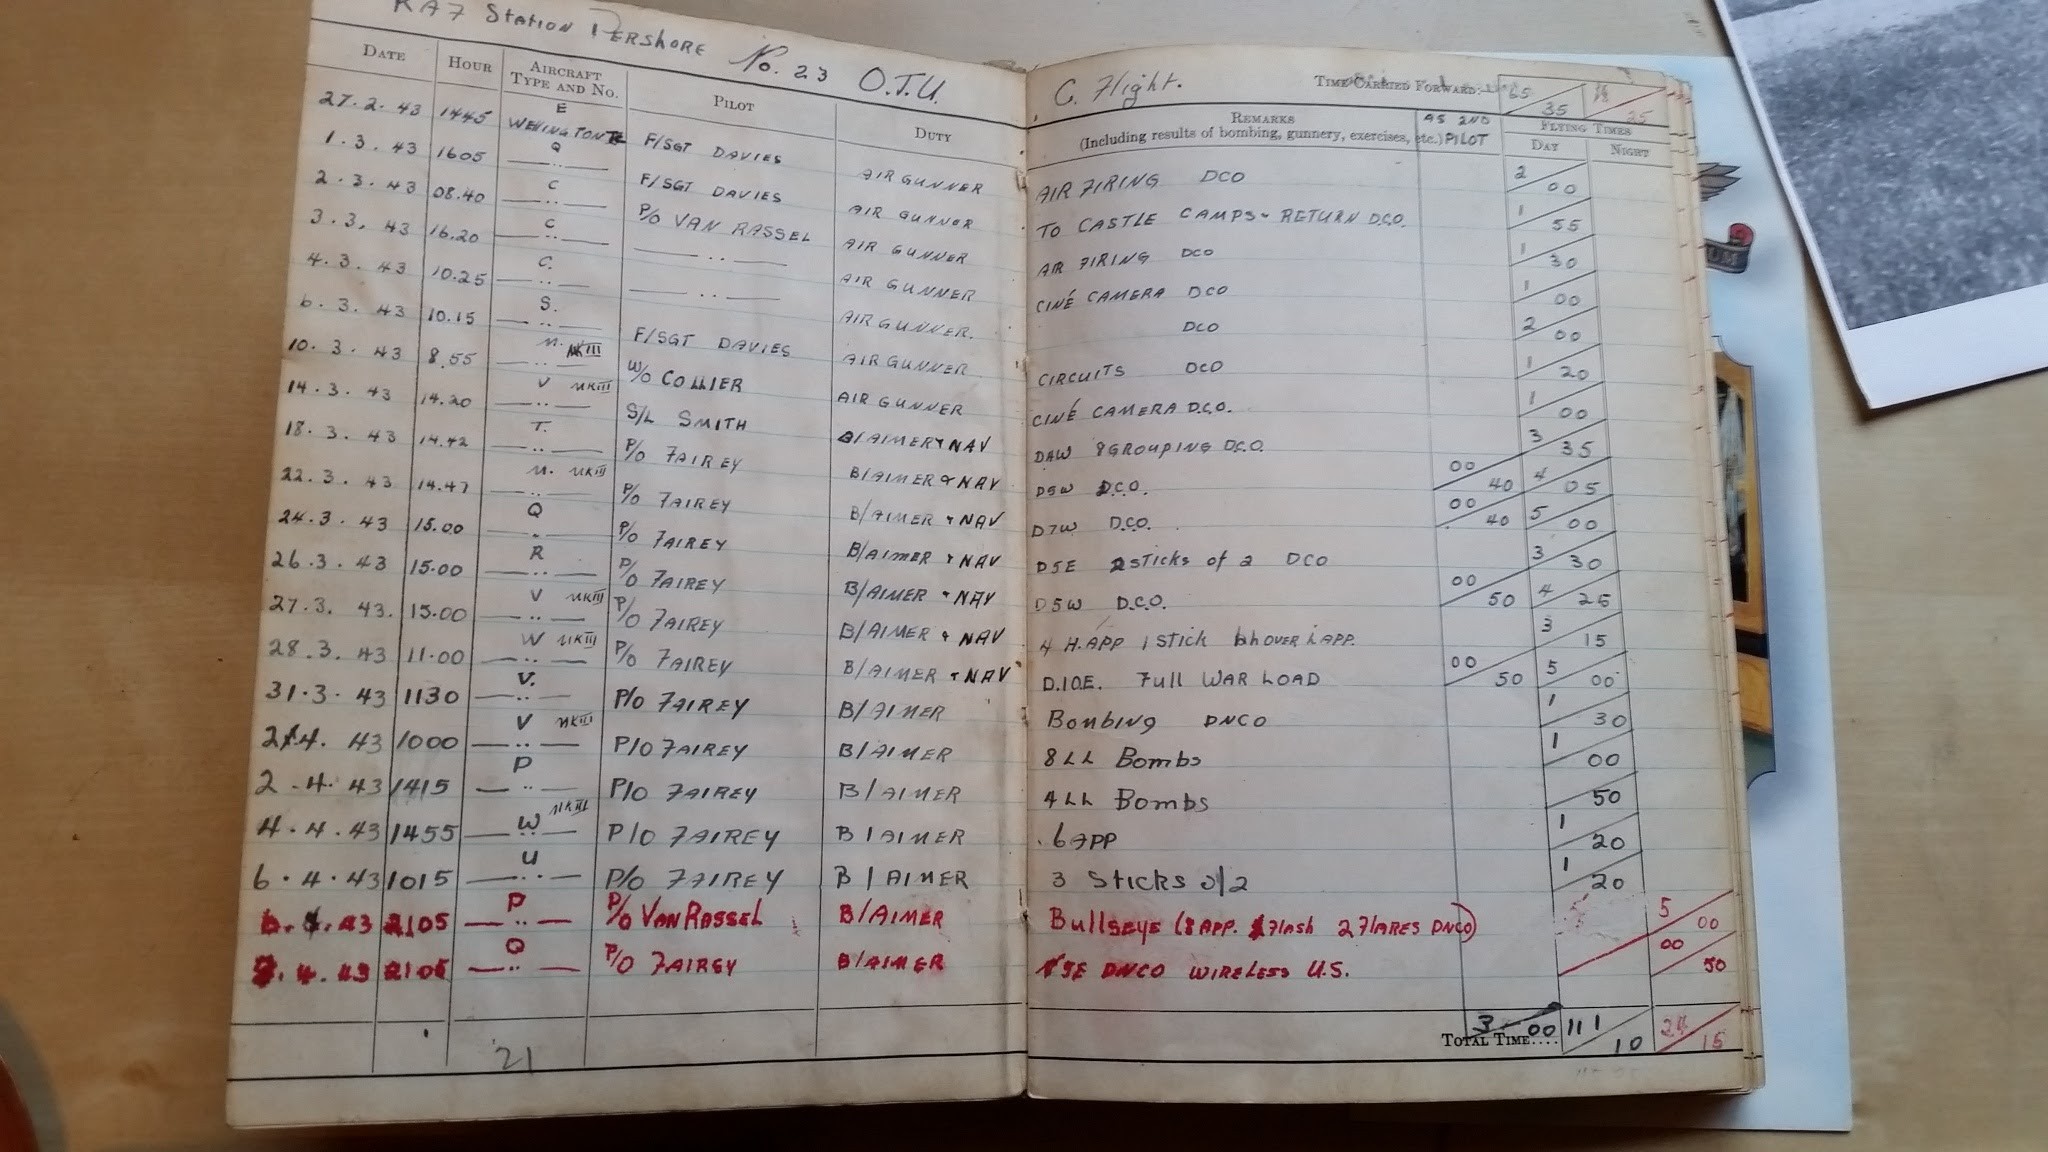 RAF Station Pershore No. 23 O.T.U. C. Flight. TIME CARRIED FORWARD:— 65 35 25
DATE HOUR AIRCRAFT TYPE AND No. PILOT DUTY REMARKS (Including results of bombing, gunnery, exercises, etc.) AS 2ND PILOT FLYING TIMES DAY NIGHT
27.2.43 1445 E WELLINGTON F/SGT DAVIES AIR GUNNER AIR FIRING DCO 2 00
1.3.43 1605 Q —··— F/SGT DAVIES AIR GUNNOR TO CASTLE CAMPS & RETURN D.C.O. 1 55
2.3.43 08.40 C —··— P/O VAN RASSEL AIR GUNNER AIR FIRING DCO 1 30
3.3.43 16.20 C —··— —··— AIR GUNNER CINÉ CAMERA DCO 1 00
4.3.43 10.25 C. —··— —··— AIR GUNNER. DCO 2 00
6.3.43 10.15 S. —··— F/SGT DAVIES AIR GUNNER CIRCUITS DCO 1 20
10.3.43 8.55 M. MKIII —··— W/O COLLIER AIR GUNNER CINÉ CAMERA D.C.O. 1 00
14.3.43 14.20 V MKIII —··— S/L SMITH B/AIMER & NAV DAW 8 GROUPING D.C.O. 3 35
18.3.43 14.42 T. —··— P/O FAIREY B/AIMER & NAV D5W D.C.O. 00 40 4 05
22.3.43 14.47 M. MKIII —··— P/O FAIREY B/AIMER & NAV D7W D.C.O. 00 40 5 00
24.3.43 15.00 Q P/O FAIREY B/AIMER & NAV D5E 2 STICKS of 2 DCO 3 30
26.3.43 15.00 R —··— P/O FAIREY B/AIMER & NAV D5W D.C.O. 00 50 4 25
27.3.43. 15.00 V MKIII —··— P/O FAIREY B/AIMER & NAV 4 H.APP 1 Stick 3 15
28.3.43 11.00 W MKIII —··— P/O FAIREY B/AIMER & NAV D.10E. Full WAR LOAD 00 50 5 00
31.3.43 1130 V. —··— P/O FAIREY B/AIMER Bombing DNCO 1 30
2.4.43 1000 V MKIII —··— P/O FAIREY B/AIMER 8 LL Bombs 1 00
2.4.43 1415 P —··— P/O FAIREY B/AIMER 4 LL Bombs 50
4.4.43 1455 W MKIII —··— P/O FAIREY B/AIMER 6 APP 1 20
6.4.43 1015 U —··— P/O FAIREY B/AIMER 3 Sticks o/2 1 20
6.4.43 2105 P —··— P/O VAN RASSEL B/AIMER Bullseye (8 APP. Flash 2 FLARES DNCO) 5 00
4.43 2105 Q —··— P/O FAIREY B/AIMER 5E DNCO WIRELESS U.S. 00 50
TOTAL TIME.... 3 00 111 10 24 15
21